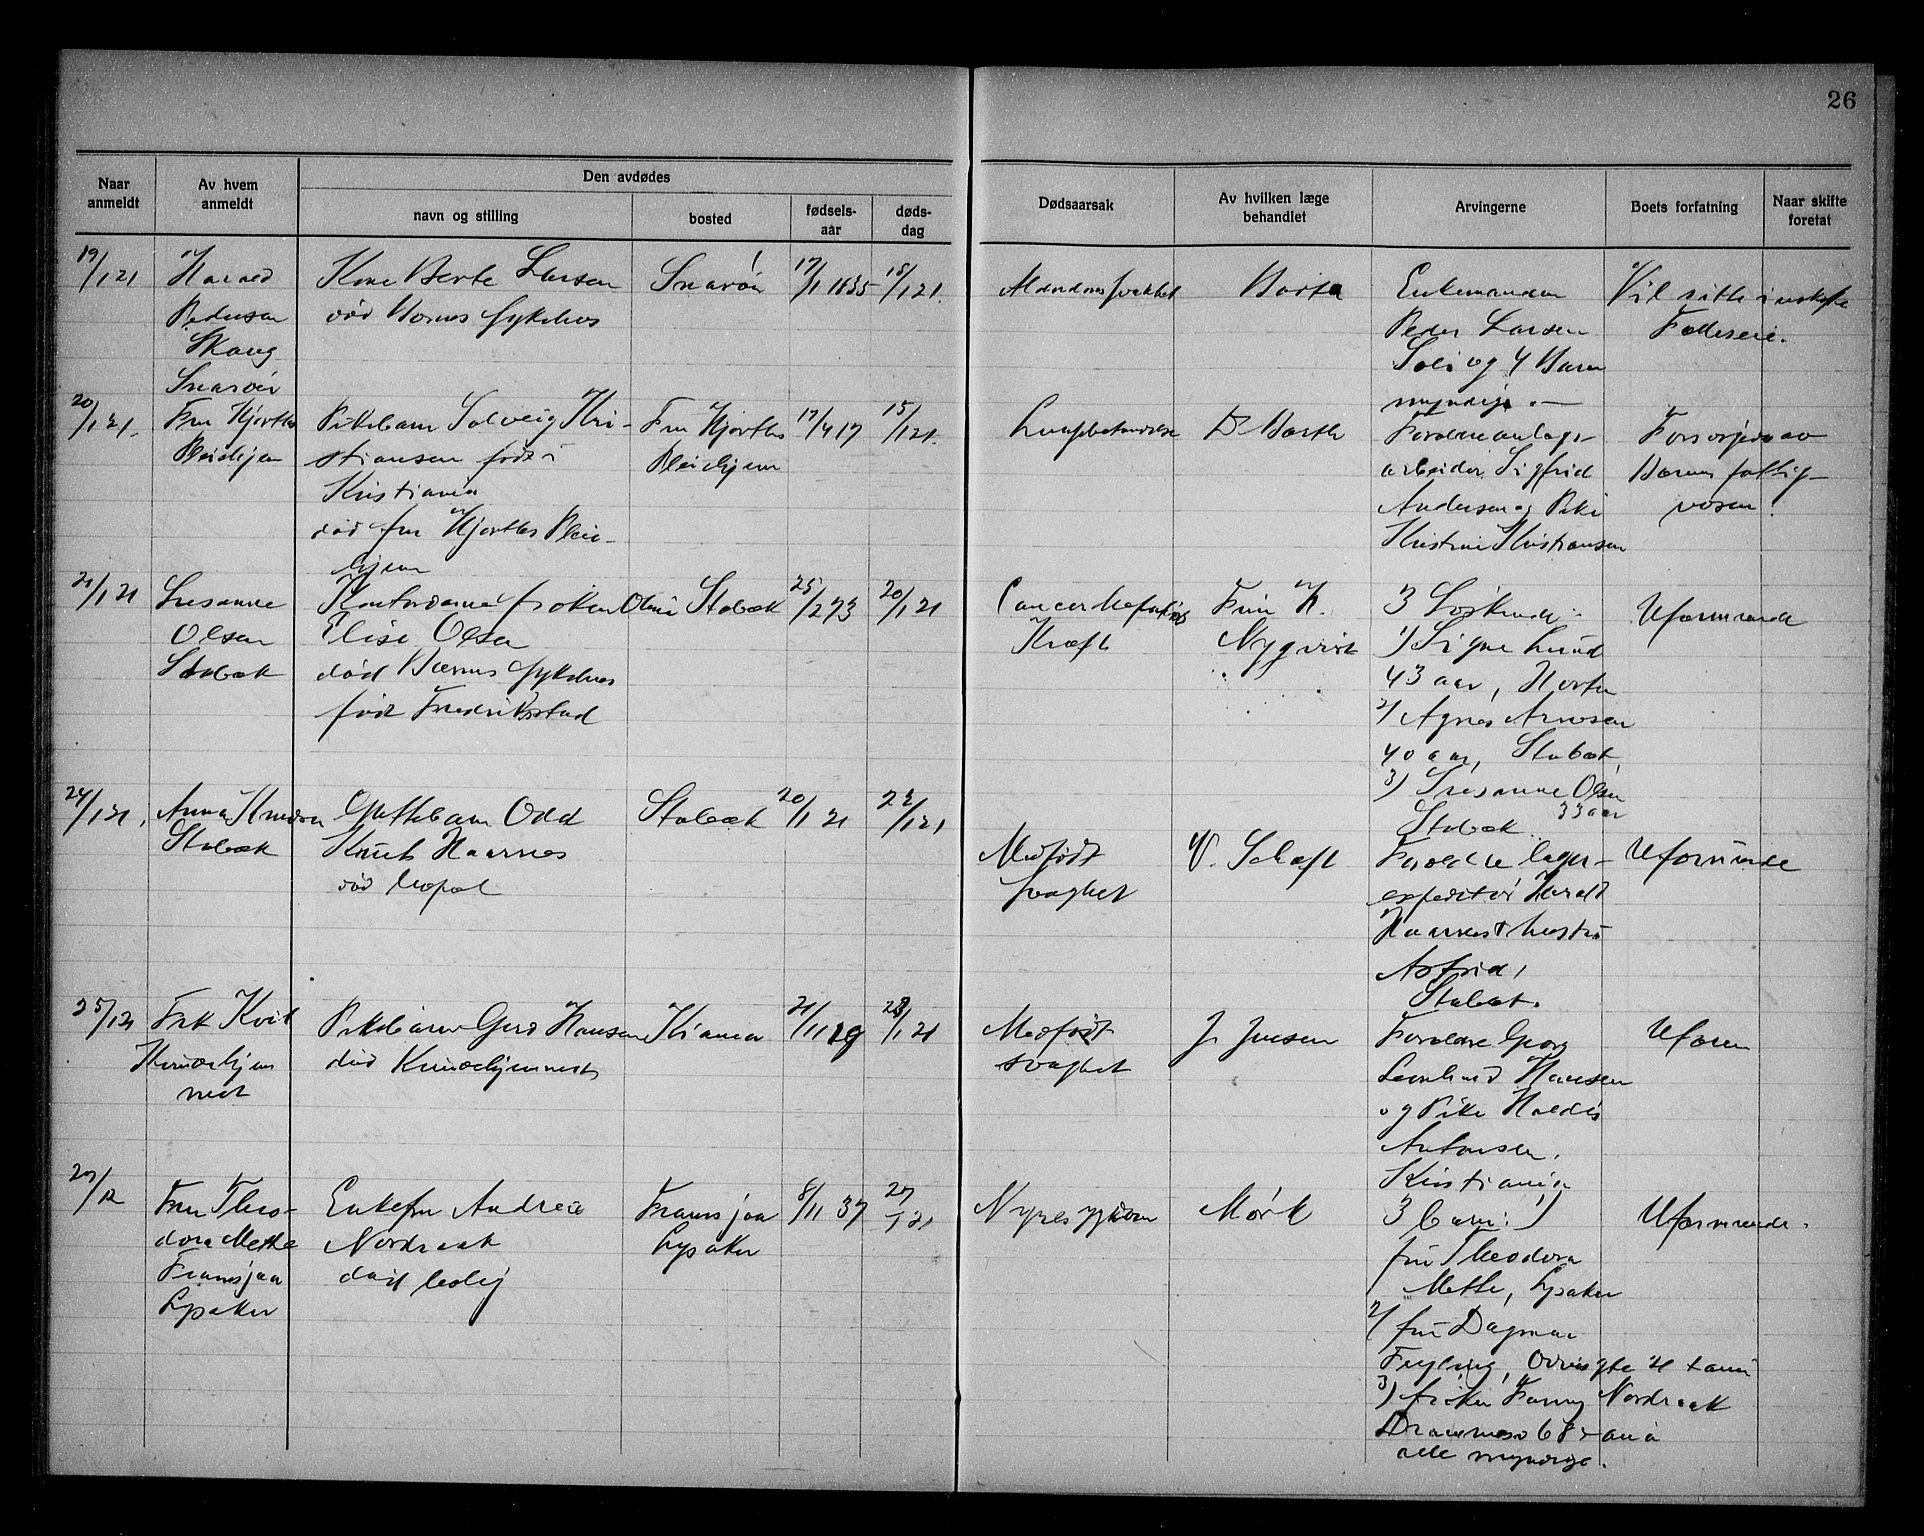 26
Naar anmeldt
Av hvem anmeldt
Den avdødes
navn og stilling
bosted
fødsels-aar
døds-dag
Dødsaarsak
Av hvilken læge behandlet
Arvingerne
Boets forfatning
Naar skifte foretat
19/1 21
Harald
Pedersen
Skaug
Snarøen
Kone Berte Larsen
død Bærums Sykehus
Snarøn
17/1 1835
18/1 21.
Alderdomssvakhet
Barth
Enkemanden
Peder Larsen
og 4 Barn
myndige.
Vil sitte i uskiftet
Fælleseie.
20/1 21.
Fru Hjorths
Pleiehjem
Pikebarn Solveig Kri-
stiansen født i
Kristiania
død fru Hjorths Pleie-
hjem
Fru Hjorths
Pleiehjem
17/4 17
15/1 21.
Lungebetændelse
Dr Barth
Forældre anlægs-
arbeider Sigfrid
Andersen og Pike
Kristine Kristiansen
Forsørjedes av
Bærums fattig-
væsen.
21/1 21
Susanne
Olsen
Stabæk
Kontordame frøken Oline
Elise Olsen
død Bærums Sykehus
født Fredrikstad
Stabæk
25/2 73
20/1 21
Cancer hepatis
Kræft
Frue K.
Nygvist
3 Søskende:
1) Signe Lund
43 aar, Horten
2) Agnes Arnesen
40 aar, Stabæk,
3) Susanne Olsen
Stabæk 33 aar
Uformuende
24/1 21.
Anna Knudsen
Stabæk
Guttebarn Odd
Knut Haarnes
død
Stabæk
20/1 21
22/1 21
Medfødt
svaghet
V. Scheft
Forældre lager-
expeditør Harald
Haarnes & hustru
Astrid,
Stabæk.
Uformuende
25/1 21
Frk Kvit
Kvindehjem
met
Pikebarn Gerd Hansen
død Kvindehjemmet
Kr.ania
21/11 19
23/1 21
Medfødt
svaghet
J. Jensen
Forældre Georg
Leonhard Hansen
og Pike Haldis
Antonsen,
Kristiania
Uform
29/1 21
Fru Theo-
dora Mette
Framsjaa
Lysaker
Enkefru Andrea
Nordraak
død bolig
Framsjaa
Lysaker
8/11 37
27/1 21
Nyresygdom
Mørk
3 barn: 1)
fru Theodora
Mette, Lysaker
2) fru Dagmar
3) frøken Fanny Nordraak
Drammensv 68 Kr.ania
alle myndige.
Uformuende.